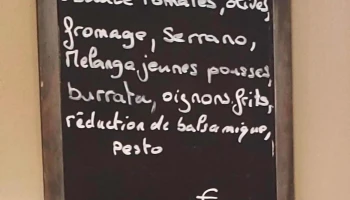 tomates, olives,
fromage, Serrano,
Melange jeunes pousses,
burrata, oignons frits,
réduction de balsamique,
pesto
€